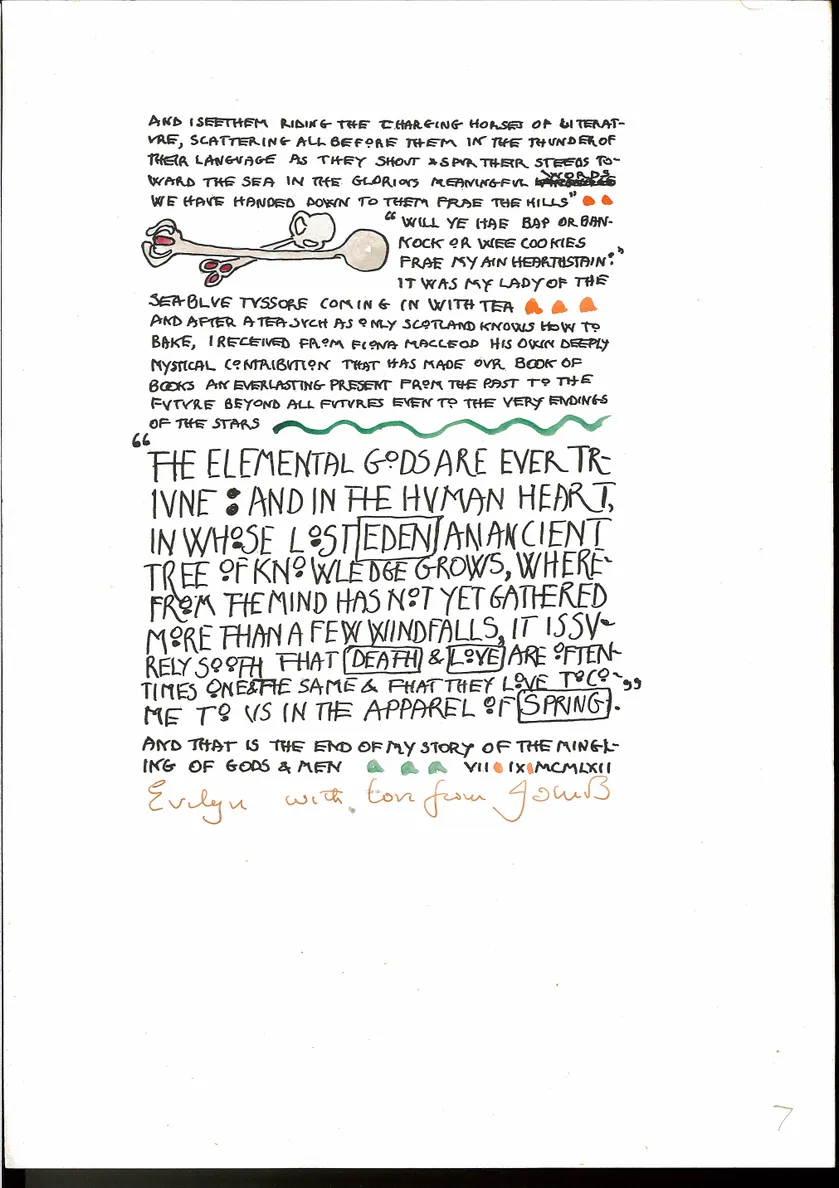 AND I SEE THEM RIDING THE CHARGING HORSES OF LITERAT-
VRE, SCATTERING ALL BEFORE THEM IN THE THUNDER OF
THEIR LANGUAGE AS THEY SHOUT & SPVR THEIR STEEDS TO-
WARD THE SEA IN THE GLORIOVS MEANINGFVL WORDS
WE HAVE HANDED DOWN TO THEM FRAE THE HILLS"
"WILL YE HAE BAP OR BAN-
NOCK OR WEE COOKIES
FRAE MY AIN HEARTHSTAIN?"
IT WAS MY LADY OF THE
SEA-BLVE TVSSORE COMING IN WITH TEA
AND AFTER A TEA SVCH AS ONLY SCOTLAND KNOWS HOW TO
BAKE, I RECEIVED FROM FIONA MACLEOD HIS OWN DEEPLY
MYSTICAL CONTRIBVTION THAT HAS MADE OVR BOOK OF
BOOKS AN EVERLASTING PRESENT FROM THE PAST TO THE
FVTVRE BEYOND ALL FVTVRES EVEN TO THE VERY ENDINGS
OF THE STARS
"THE ELEMENTAL GODS ARE EVER TR-
IVNE : AND IN THE HVMAN HEART,
IN WHOSE LOST EDEN AN ANCIENT
TREE OF KNOWLEDGE GROWS, WHERE-
FROM THE MIND HAS NOT YET GATHERED
MORE THAN A FEW WINDFALLS, IT IS SV-
RELY SOOTH THAT DEATH & LOVE ARE OFTEN-
TIMES ONE & THE SAME & THAT THEY LOVE TO CO-
ME TO VS IN THE APPAREL OF SPRING."
AND THAT IS THE END OF MY STORY OF THE MINGL-
ING OF GODS & MEN VII IX MCMLXII
Evelyn with love from John B
7